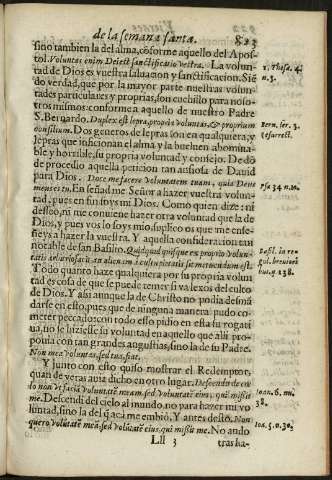 de la semana santa. 823
sino tambien la del alma, cõforme aquello del Apos-
tol. Voluntas enim Dei est sanctificatio vestra. La volun-
tad de Dios es vuestra saluacion y sanctificacion. Siẽ
do verdad, que por la mayor parte nuestras volun-
tades particulares y proprias, son cuchillo para noso-
tros mismos conforme a aquello de nuestro Padre
S. Bernardo. Duplex est lepra, propria voluntas, & proprium
consilium. Dos generos de lepras son en qualquiera, y
lepras que inficionan el alma y la bueluen abomina-
ble y horrible, su propria voluntad y consejo. De dõ
de procedio aquella peticion tan ansiosa de Dauid
para Dios. Doce me facere voluntatem tuam, quia Deus
meus es tu. Enseñad me Señor a hazer vuestra volun-
tad, pues en fin soys mi Dios. Como quien dize: ni
desseo, ni me conuiene hazer otra voluntad que la de
Dios, y pues vos lo soys mio, suplico os que me ense-
ñeys a hazer la vuestra. Y aquella consideracion tan
notable de san Basilio. Quidquid quisque ex proprio volun-
Todo quanto haze qualquiera por su propria volun
tad es cosa de que se puede temer si va lexos del culto
de Dios. Y assi aunque la de Christo no podia desmã
darse en esto, pues que de ninguna manera pudo co-
meter peccado: con todo esso pidio en esta su rogati
ua, no se hiziesse su voluntad en aquello que alli pro-
ponia con tran grandes angustias, sino la de su Padre.
Non mea voluntas, sed tua fiat.
Y junto con esto quiso mostrar el Redemptor,
quan de veras auia dicho en otro lugar. Descendi de cœ
lo non vt faciã voluntatẽ meam, sed voluntatẽ eius, qui misit
me. Descendi del cielo al mundo, no para hazer mi vo
luntad, sino la del q̃ aca me embiò. Y antes desto. Non
quæro voluntatẽ meã, sed voluntatẽ eius, qui misit me. No ando
Lll 3 tras ha-
1. Thess. 4.
n. 3.
Bern. ser. 3.
resurrect.
Psa. 34. n. 10.
Basil. in re
gul. breuiori
bus. q. 138.
Ioan. 6. nu.
38.
Ioa. 5. n. 30.